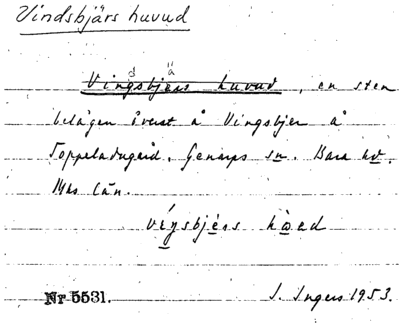 Vindsbjärs huvud
d ä
Vingsbjers huvud, en sten
belägen överst å Vingsbjer å
Toppeladugård. Genarps sn. Bara hd.
Mlhs län.
Nr 5531. I. Ingers 1953.